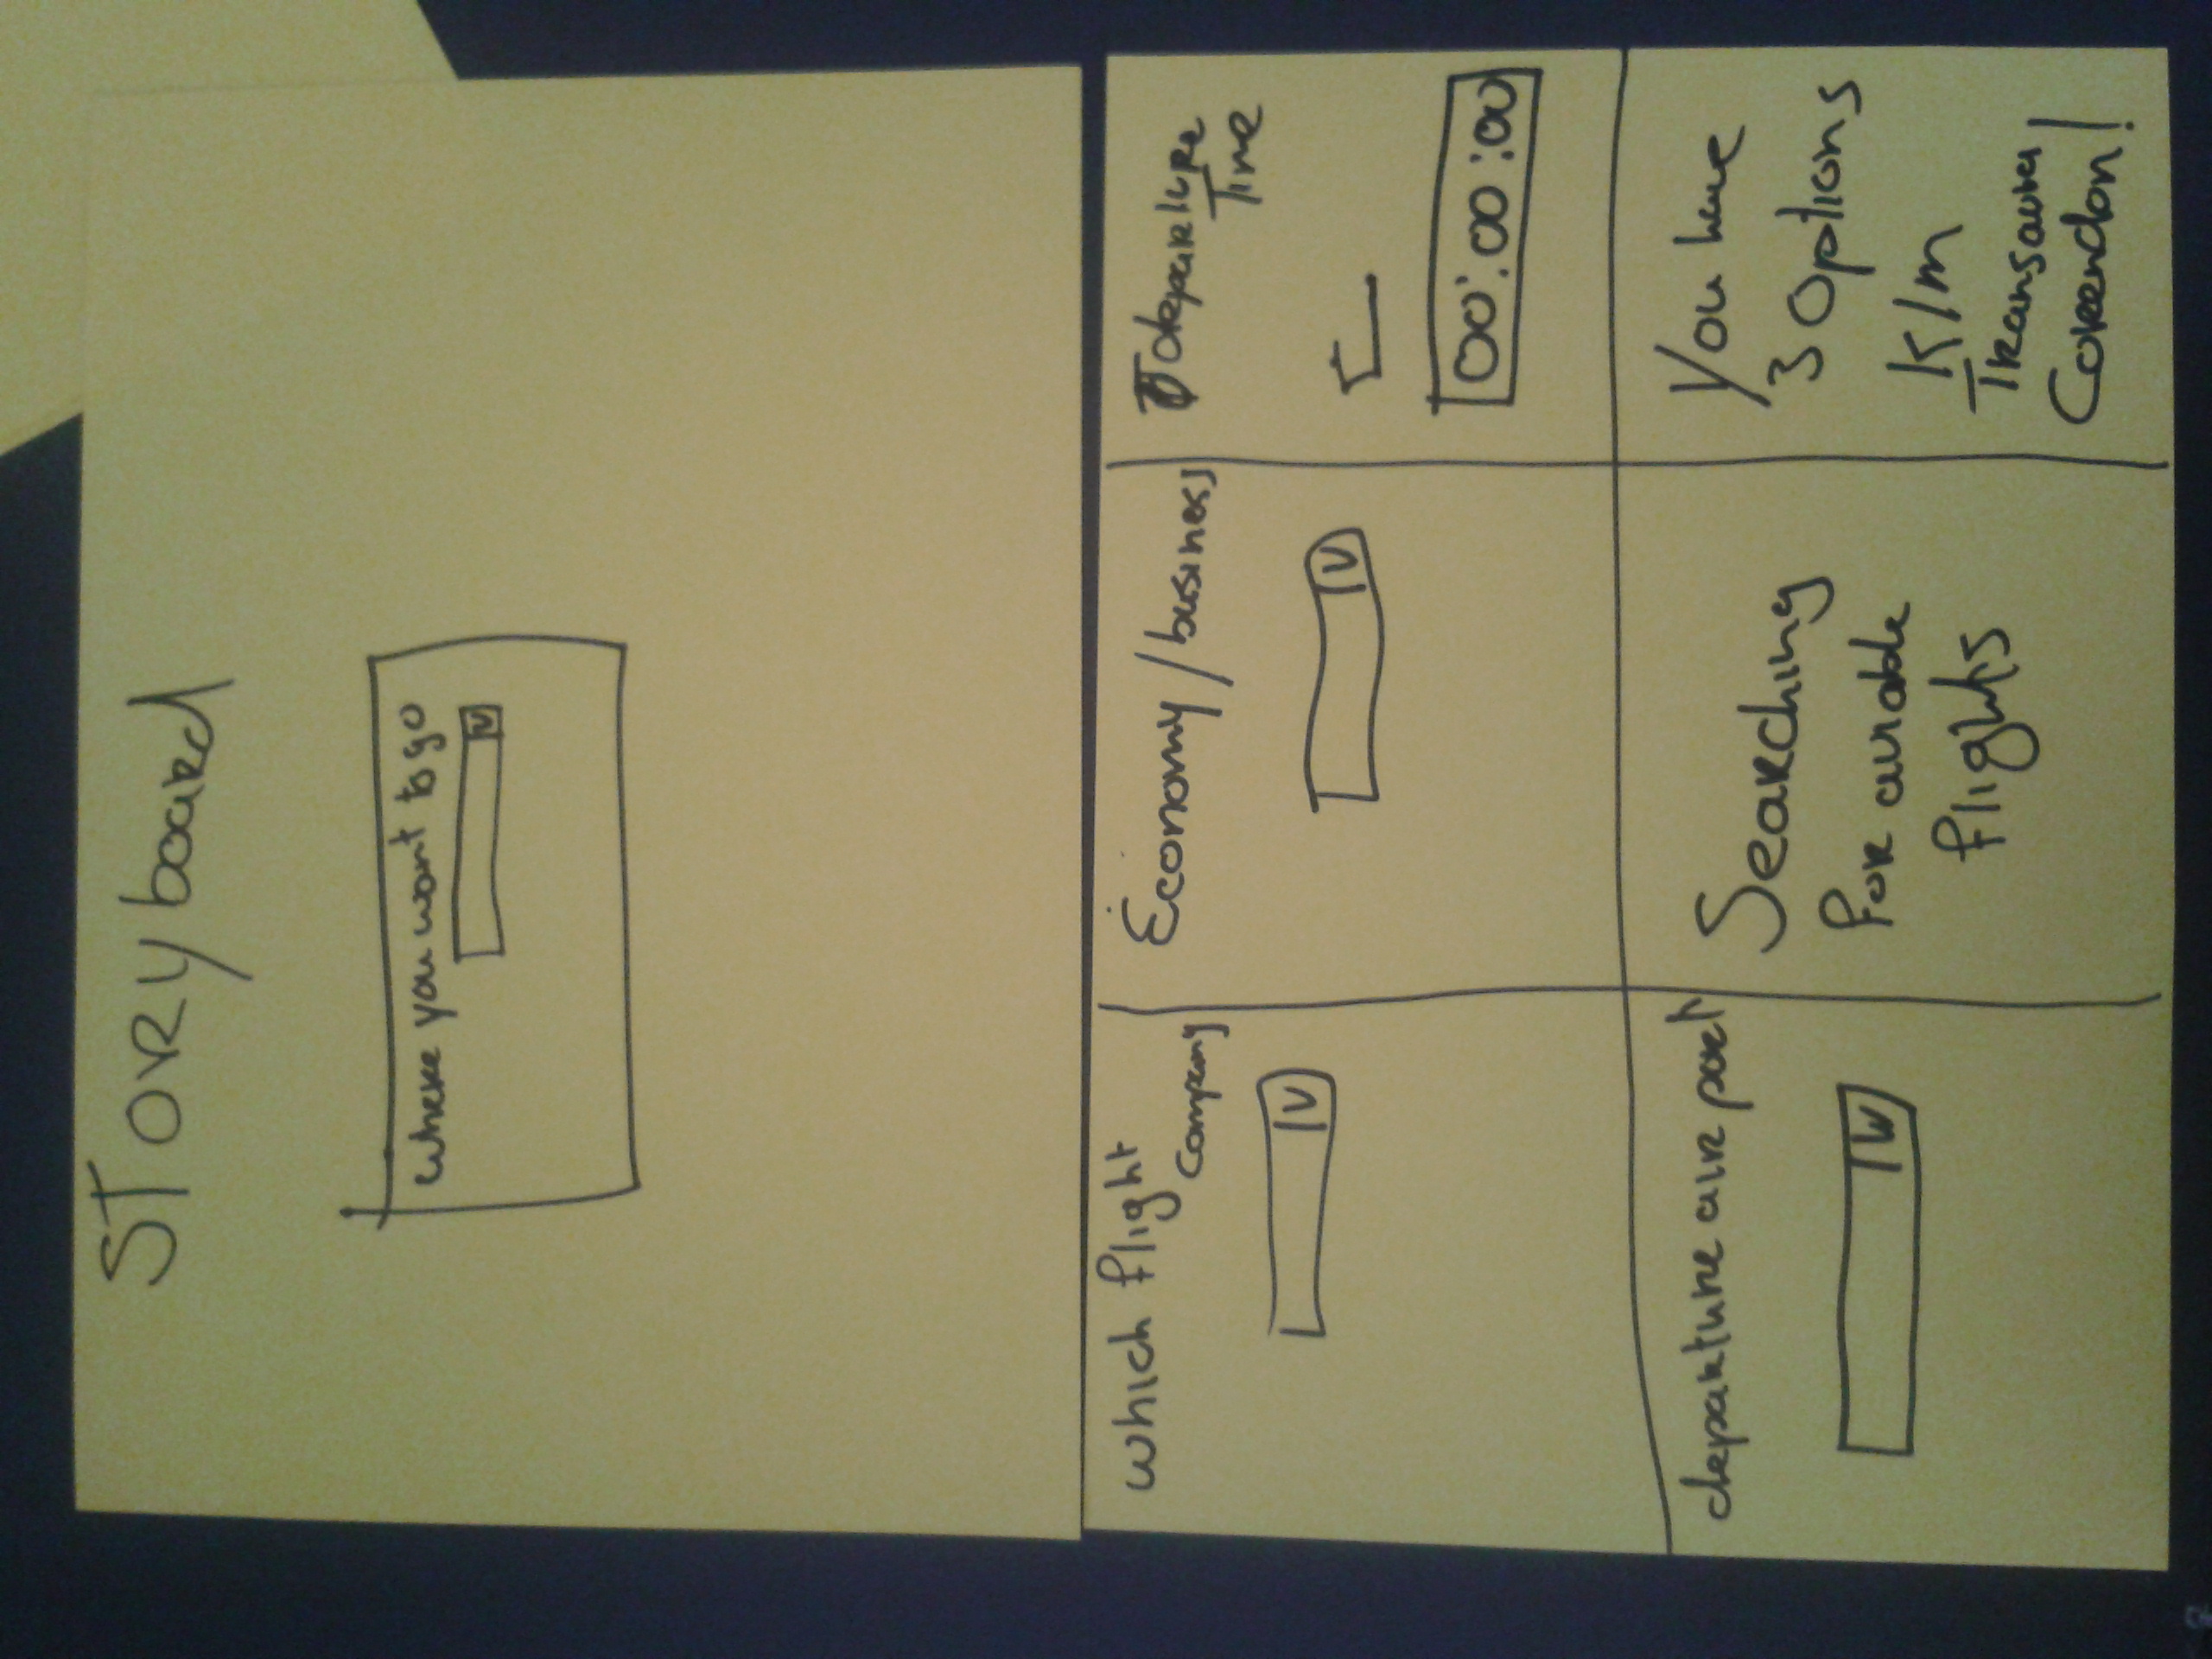 STORYboard
where you want to go
V
which flight
company
V
Economy/business
V
departure
Time
00:00:00
departure air port
V
Searching
For aviable
flights
You have
3 Options
KLM
Transavia
Corendon!